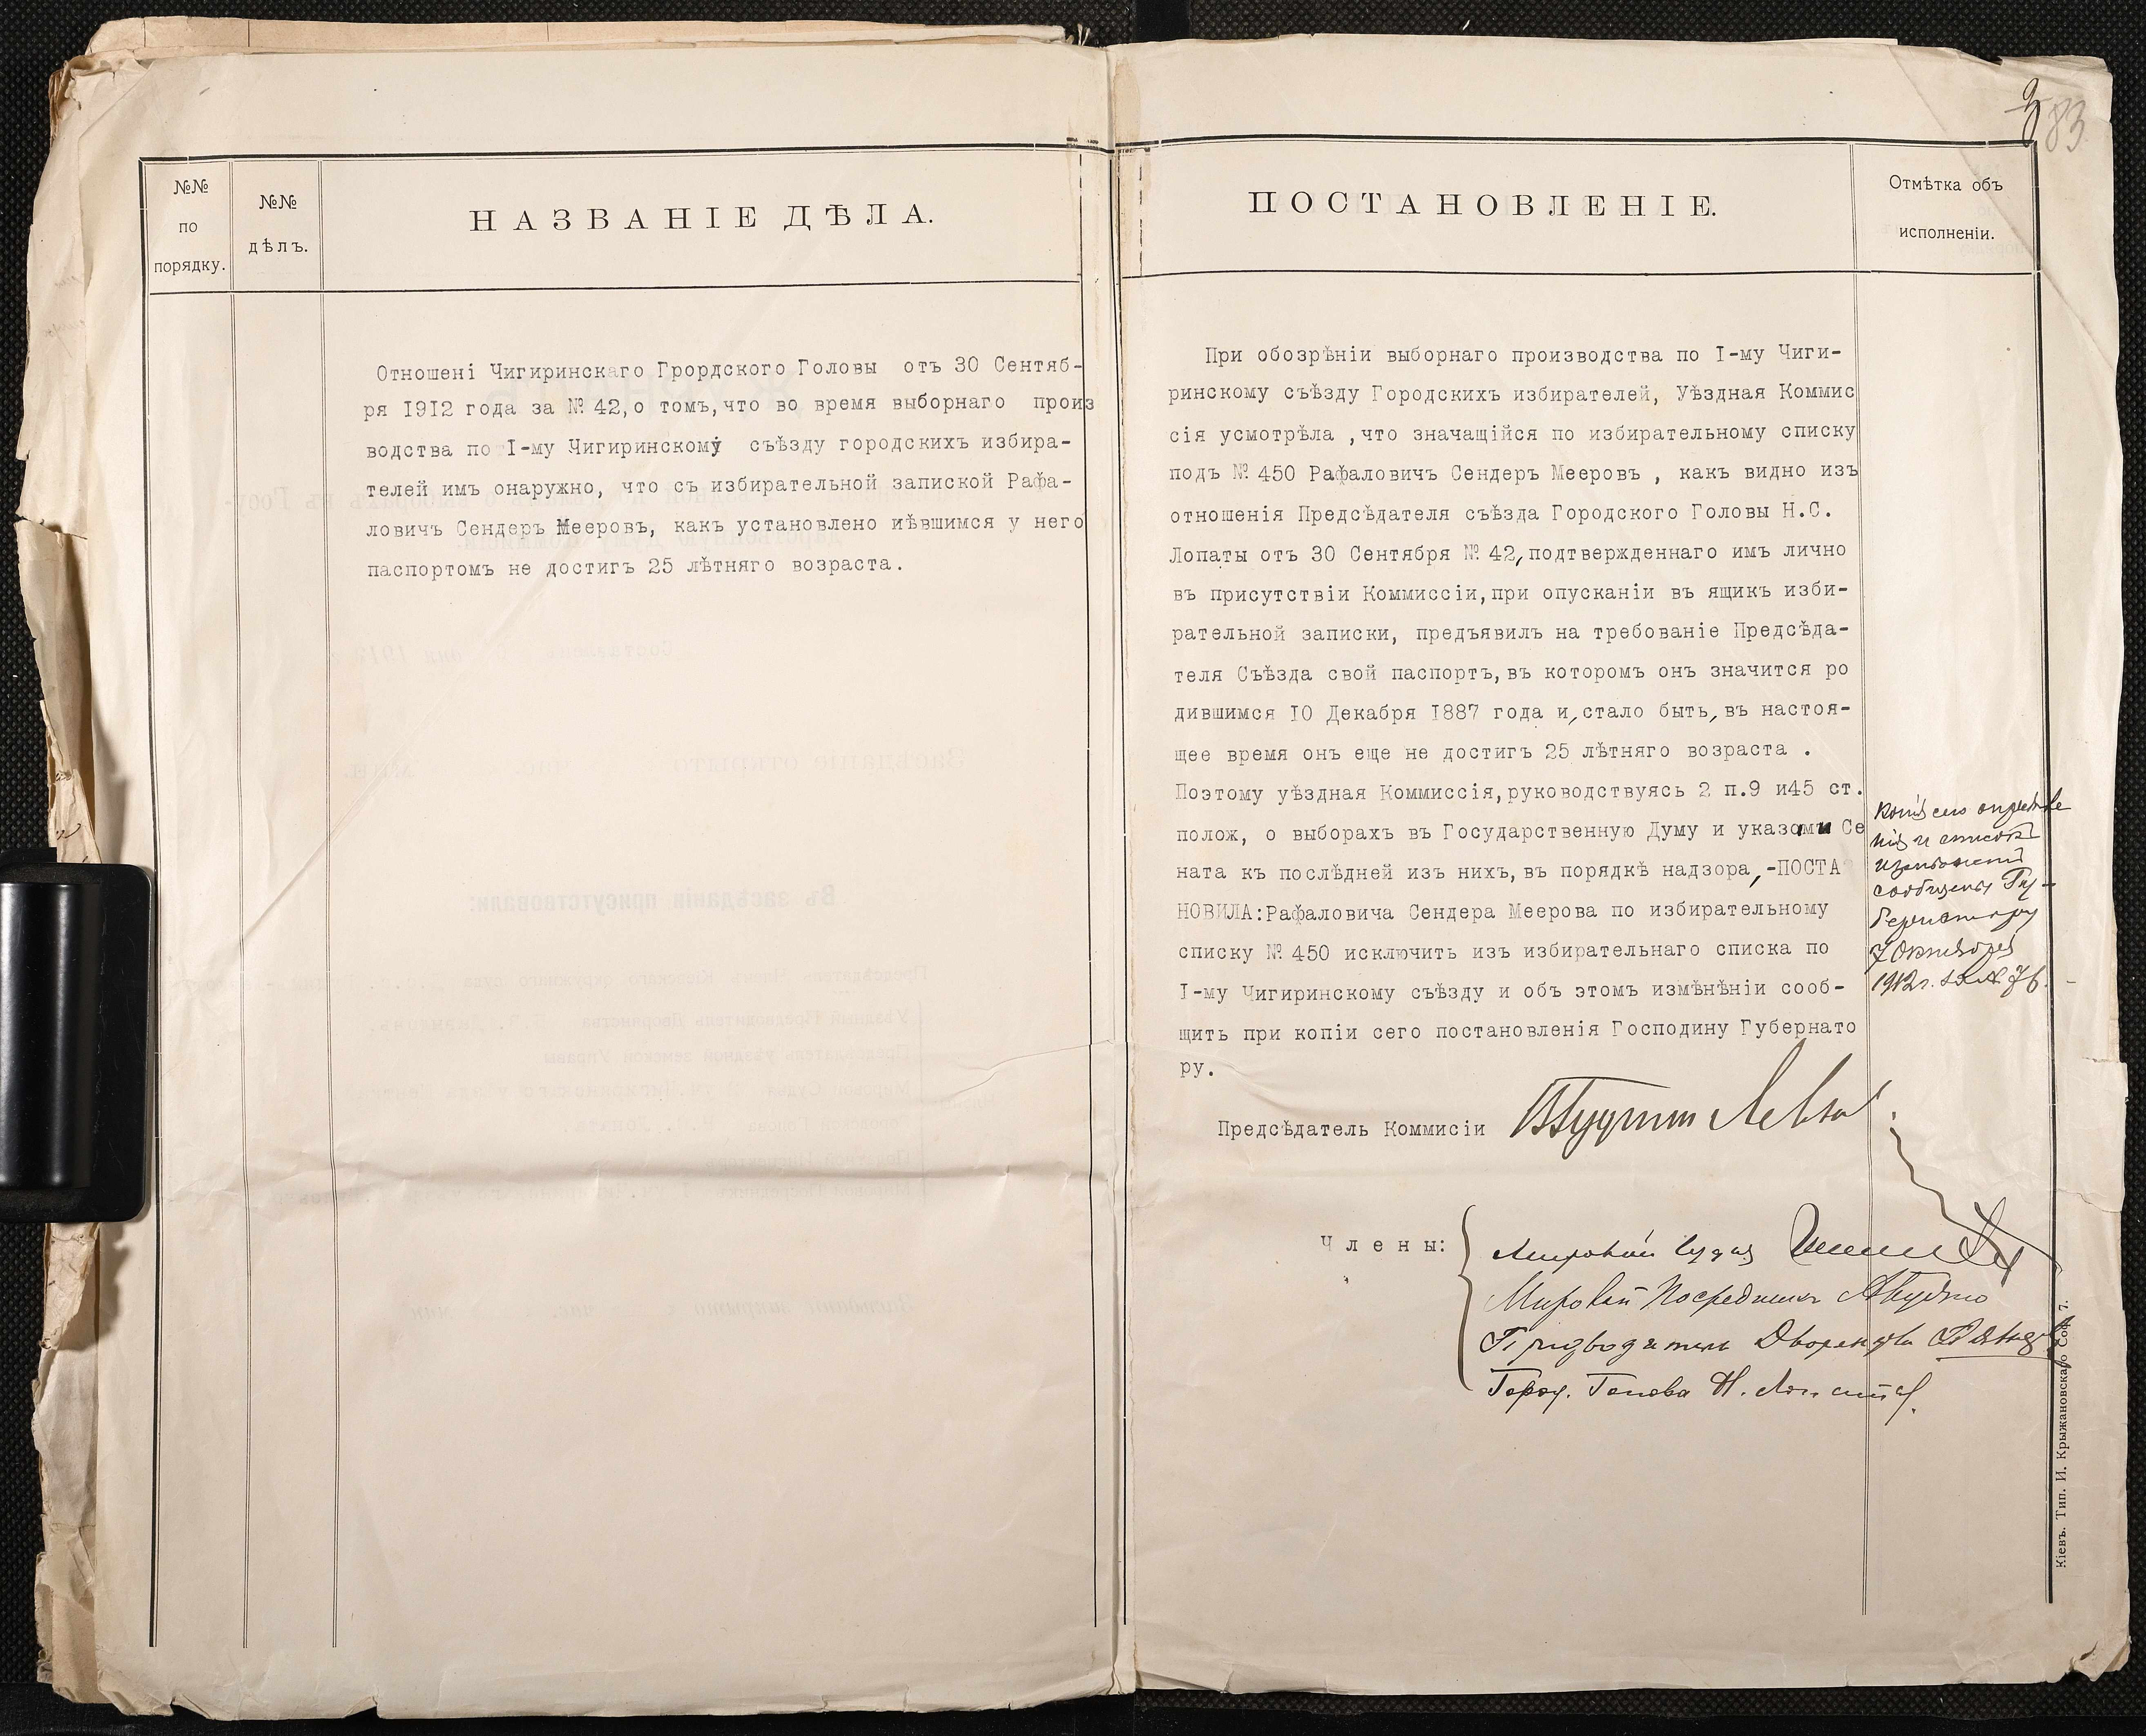 83
№№
по
порядку.
№№
дѣлъ.
НАЗВАНІЕ ДѢЛА.
Отношені Чигиринскаго Грордского Головы отъ 30 Сентяб-
ря 1912 года за № 42, о томъ, что во время выборнаго произ
водства по I-му Чигиринскому съѣзду городскихъ избира-
телей имъ онаружно, что съ избирательной запиской Рафа-
ловичъ Сендеръ Мееровъ, какъ установлено иѣвшимся у него
паспортомъ не достигъ 25 лѣтняго возраста.
ПОСТАНОВЛЕНІЕ.
Отмѣтка объ
исполненіи.
При обозрѣніи выборнаго производства по I-му Чиги-
ринскому съѣзду Городскихъ избирателей, Уѣздная Коммис
сія усмотрѣла ,что значащійся по избирательному списку
подъ № 450 Рафаловичъ Сендеръ Мееровъ , какъ видно изъ
отношенія Предсѣдателя съѣзда Городского Головы Н.С.
Лопаты отъ 30 Сентября № 42, подтвержденнаго имъ лично
въ присутствіи Коммиссіи, при опусканіи въ ящикъ изби-
рательной записки, предъявилъ на требованіе Предсѣда-
теля Съѣзда свой паспортъ, въ которомъ онъ значится ро
дившимся 10 Декабря 1887 года и, стало быть, въ настоя-
щее время онъ еще не достигъ 25 лѣтняго возраста .
Поэтому уѣздная Коммиссія, руководствуясь 2 п.9 и45 ст.
полож, о выборахъ въ Государственную Думу и указами Се
ната къ послѣдней изъ нихъ, въ порядкѣ надзора, -ПОСТА
НОВИЛА: Рафаловича Сендера Меерова по избирательному
списку № 450 исключить изъ избирательнаго списка по
I-му Чигиринскому съѣзду и объ этомъ измѣнѣніи сооб-
щить при копіи сего постановленія Господину Губернато
ру.
Копія сего опредѣле
нія и списокъ
измѣненій
сообщены Гу-
бернатору
7 Октября
1912 г. за № 76.
Предсѣдатель Коммисіи
Члены:
Мировой Судья
Мировой Посредникъ
Предводитель Дворянства
Город. Голова Н. Лопата.
Кіевъ. Тип. И. Крыжановскаго Соф. 7.